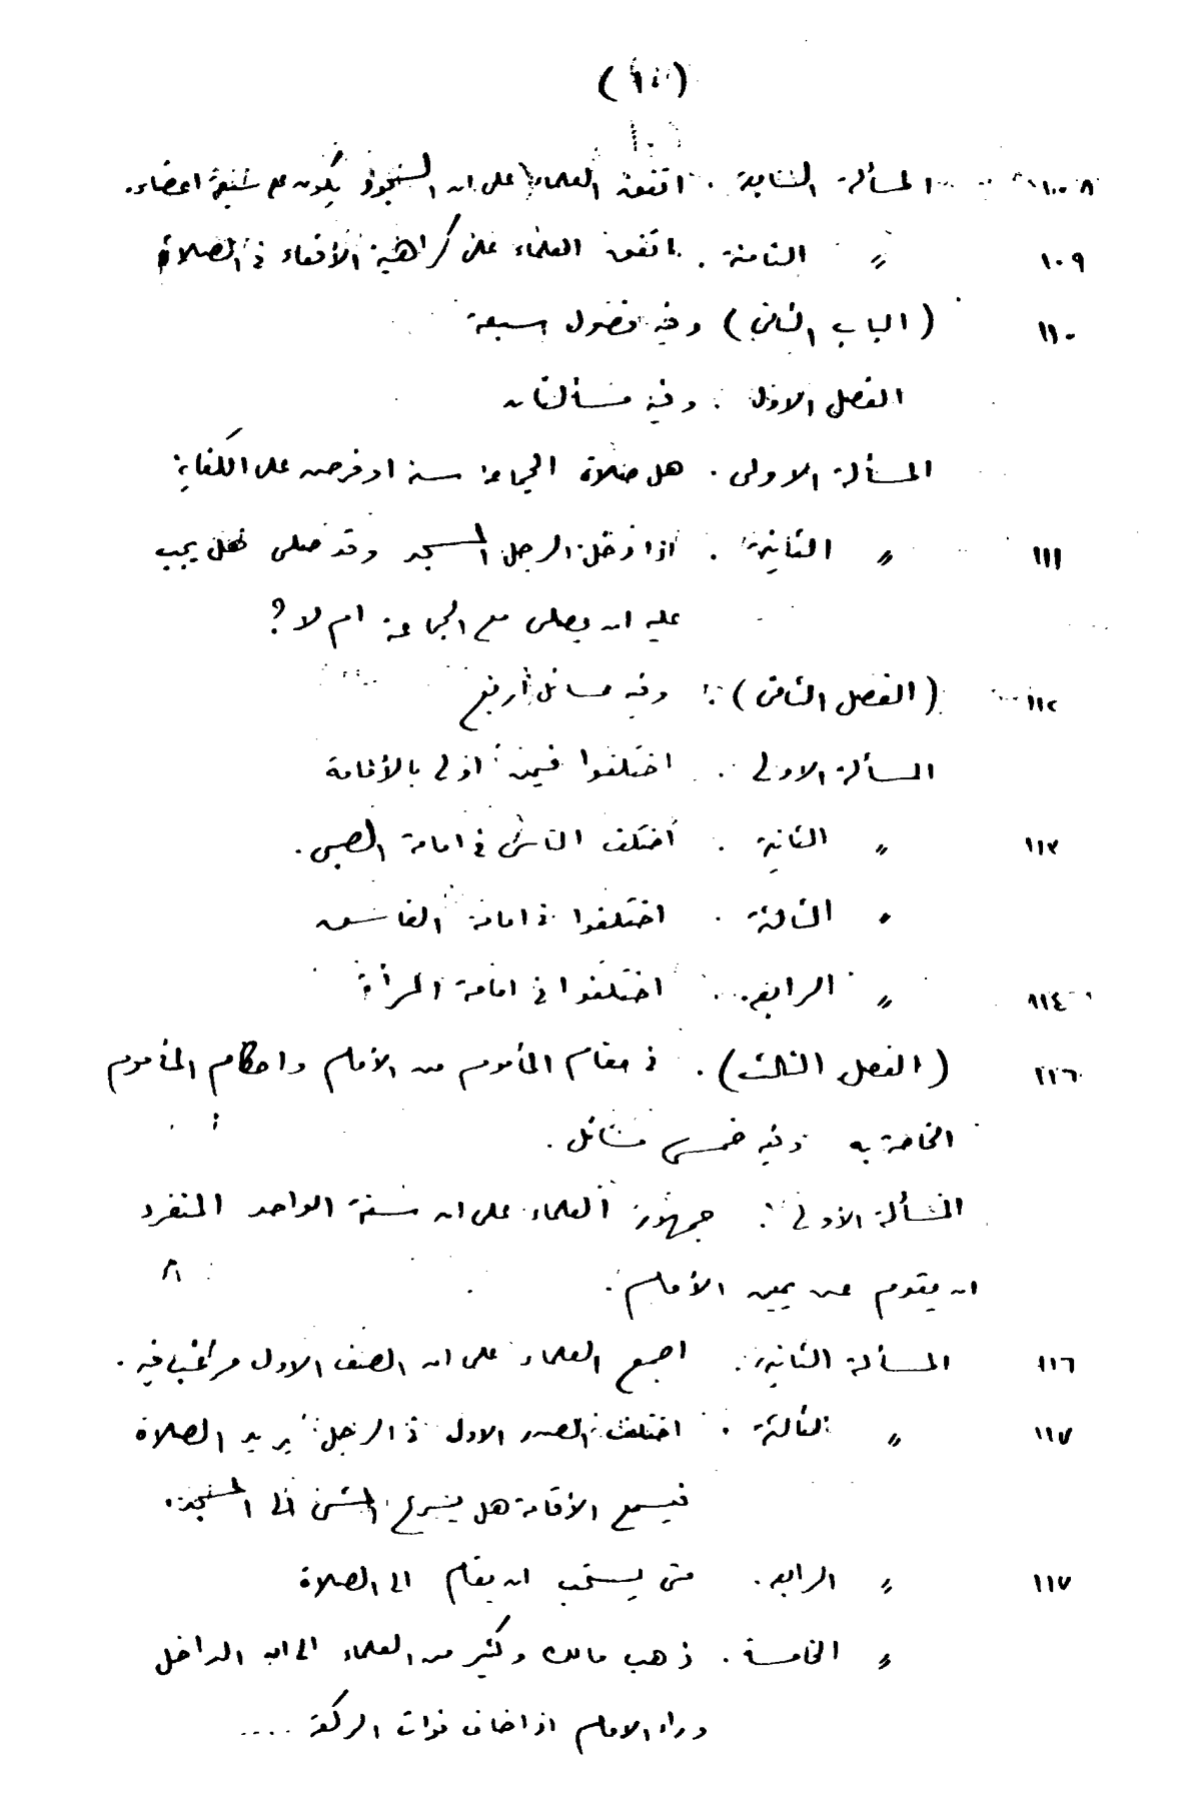 (١٠)
١٠٨ المسألة السابعة . اتفق العلماء على ان السجود يكون على سبعة اعضاء.
١٠٩ " الثامنة . اتفق العلماء على كراهية الأقعاء في الصلاة
١١٠ (الباب الثاني) وفيه فصول سبعة
الفصل الاول . وفيه مسألتان
المسألة الاولى . هل صلاة الجماعة سنة او فرض على الكفاية
١١١ " الثانية . اذا دخل الرجل المسجد وقد صلى فهل يجب
عليه ان يصلى مع الجماعة ام لا ؟
١١٢ (الفصل الثانى) : وفيه مسائل أربع
المسألة الاولى . اختلفوا فيمن اولى بالأمامة
١١٣ " الثانية . اختلف الناس في امامة الصبى .
" الثالثة . اختلفوا في امامة الفاسق
١١٤ " الرابعة . اختلفوا في امامة المرأة
١١٦ (الفصل الثالث) . في مقام المأموم من الأمام واحكام المأموم
الخاصة به وفيه خمس مسائل .
المسألة الأولى : جمهور العلماء على ان سنة الواحد المنفرد
ان يقوم عن يمين الأمام .
١١٦ المسألة الثانية . اجمع العلماء على ان الصف الاول مرغب فيه .
١١٧ " الثالثة . اختلف الصدر الاول في الرجل يريد الصلاة
فيسمع الأقامة هل يسرع المشى الى المسجد .
١١٧ " الرابعة . متى يستحب ان يقام الى الصلاة
" الخامسة . ذهب مالك وكثير من العلماء الى ان الداخل
وراء الامام اذا خاف فوات الركعة ....